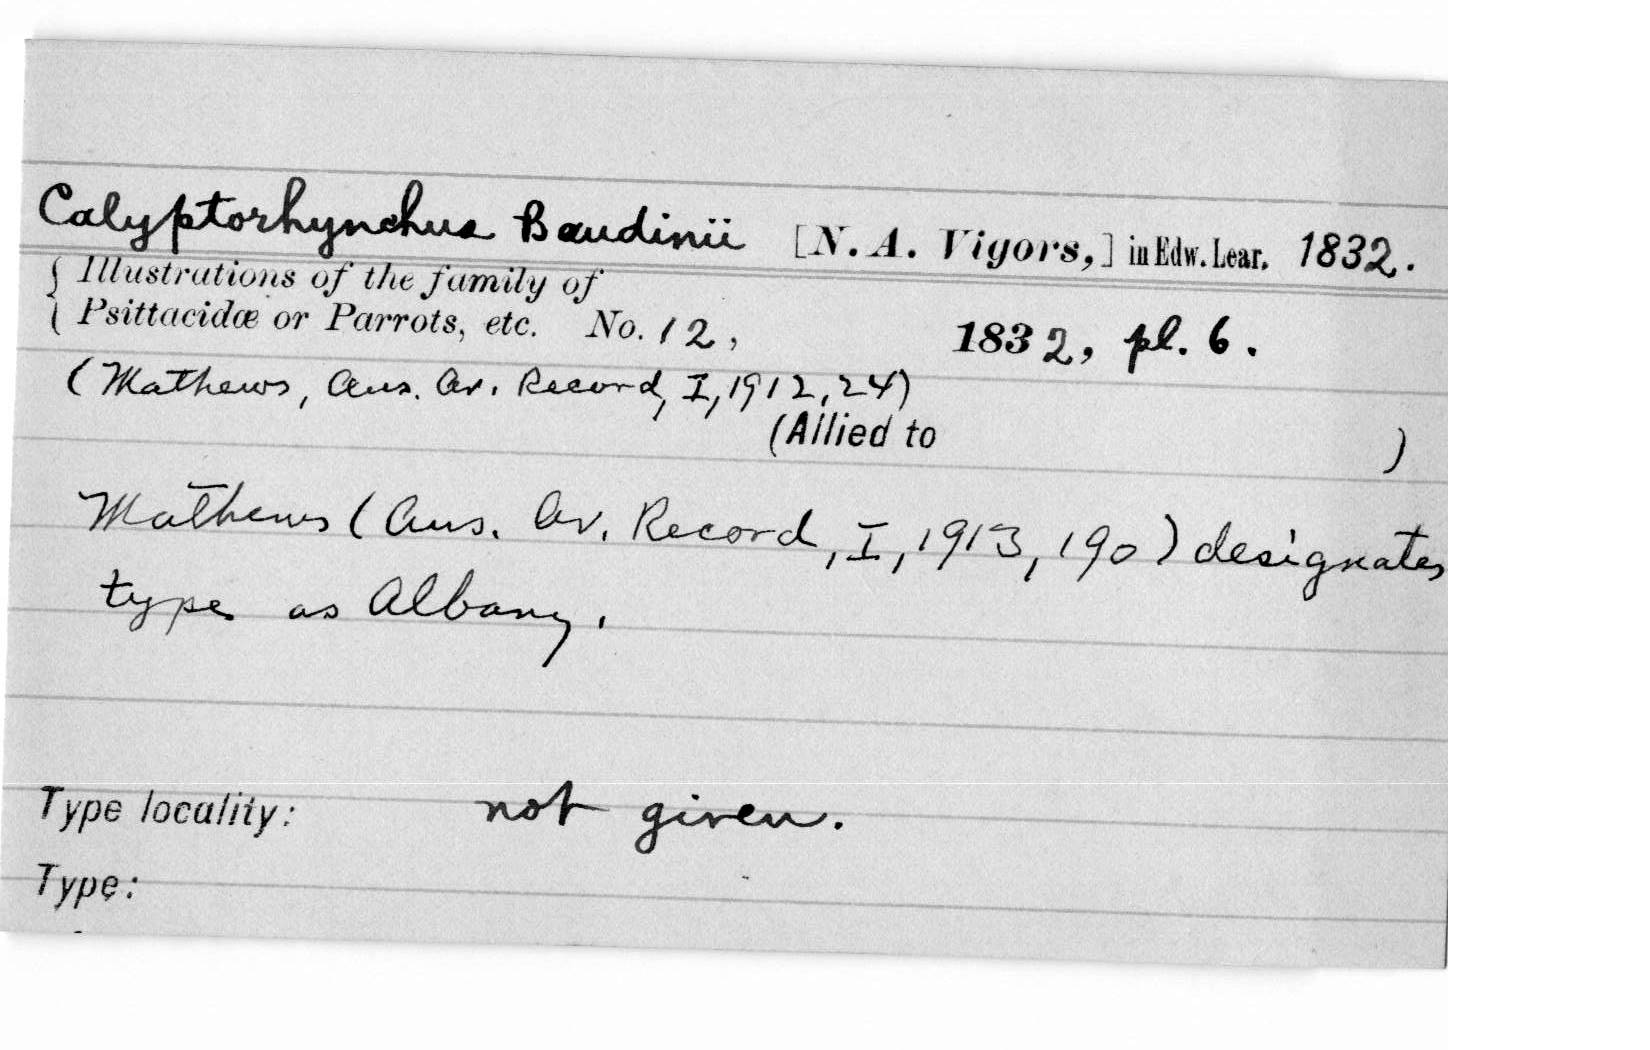 Calyptorhynchus Baudinii [N. A. Vigors,] in Edw. Lear. 1832.
Illustrations of the family of
Psittacidæ or Parrots, etc. No. 12, 1832, pl. 6.
(Mathews, Aus. Av. Record, I, 1912, 24)
(Allied to )
Mathews (Aus. Av. Record, I, 1913, 190) designates
type as Albany.
Type locality: not given.
Type: